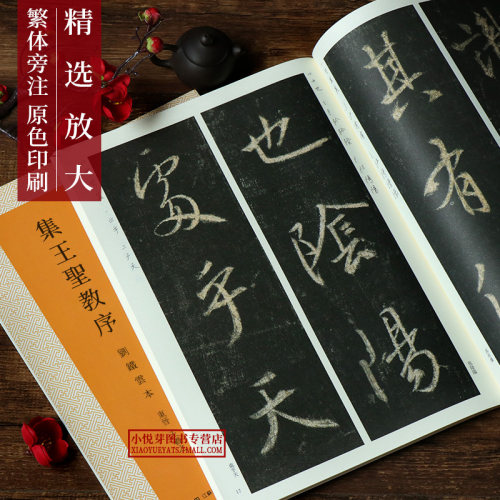 精选放大
繁体旁注 原色印刷
其有
也陰陽
處乎天
集王聖教序
劉鐵雲本
小悦芽图书专营店
XIAOYUEYATS.TMALL.COM